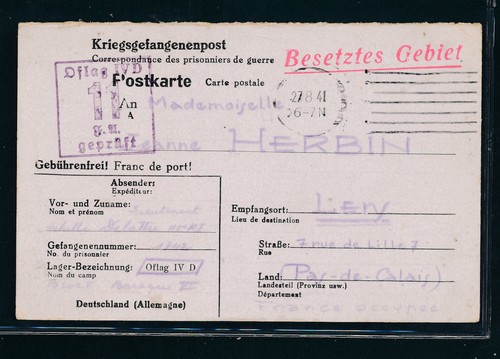 Kriegsgefangenenpost
Correspondance des prisonniers de guerre
Besetztes Gebiet
Oflag IV D
11
g.u.
geprüft
Postkarte Carte postale
27.8.41
6-7N
An Mademoiselle
A
HERBIN
Gebührenfrei! Franc de port!
Absender:
Expéditeur:
Vor- und Zuname: Lieutenant
Nom et prénom
Gefangenennummer:
No. du prisonnier
Lager-Bezeichnung: Oflag IV D
Nom du camp
Block Baraque
Deutschland (Allemagne)
Empfangsort: Lens
Lieu de destination
Straße: 7 rue de Lille 7
Rue
Land: (Pas-de-Calais)
Landesteil (Provinz usw.)
Département
France occupée